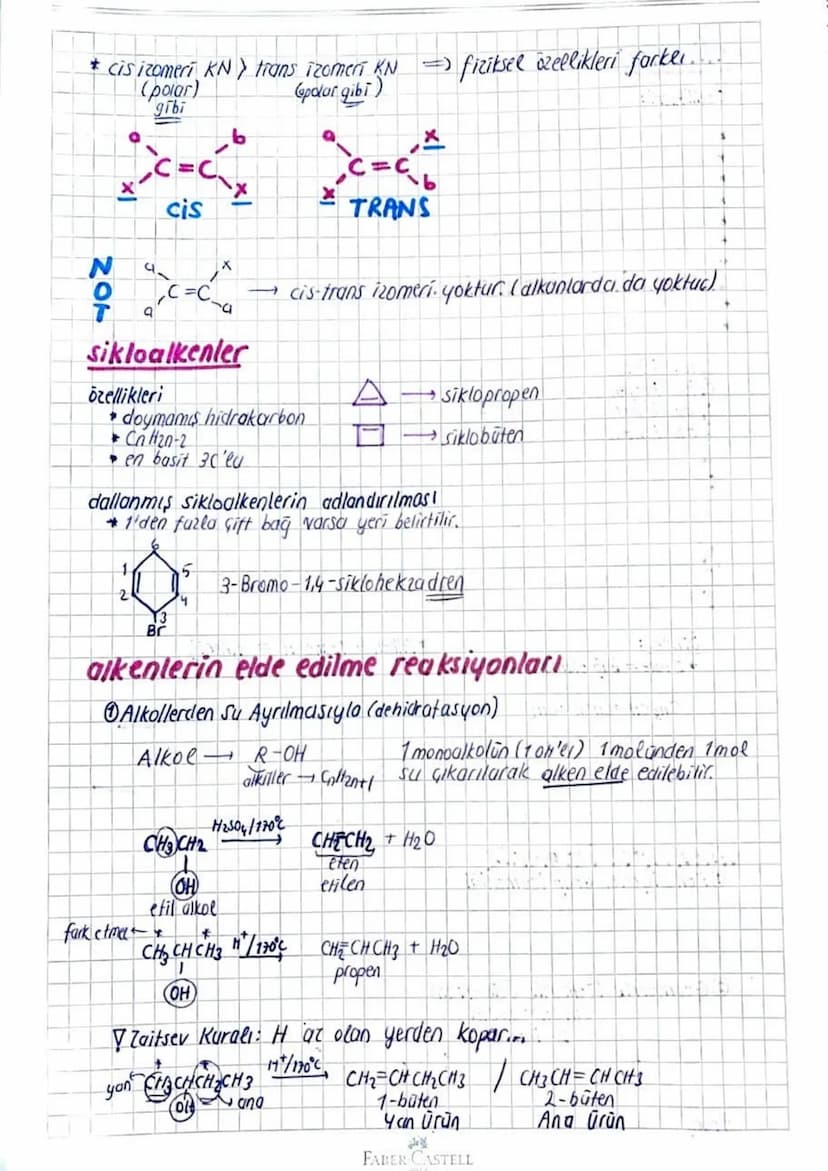 * cis izomeri KN > trans izomeri KN => fiziksel özellikleri farklı...
(polar) (apolar gibi)
gibi
a b a x
C=C C=C
x x x b
cis TRANS
NOT
a x
C=C → cis-trans izomeri yoktur. (alkunlarda da yoktur)
a a
sikloalkenler
özellikleri
• doymamış hidrokarbon
• CnH2n-2
• en basit 3C'lu
→ siklopropen
→ siklobüten
dallanmış sikloalkenlerin adlandırılması
* 1'den fazla çift bağ varsa yeri belirtilir.
6
1 5
2 4
3
Br
3-Bromo-1,4-siklohekzadien
alkenlerin elde edilme reaksiyonları
① Alkollerden Su Ayrılmasıyla (dehidratasyon)
Alkol → R-OH
alkiller → CnH2n+1
1 monoalkolün (1 OH'lı) 1 molünden 1 mol
su çıkarılarak alken elde edilebilir.
CH3CH2 H2SO4/170°C → CH2=CH2 + H2O
OH eten
etil alkol etilen
fark etmez ← * *
CH3CHCH3 H+/170°C CH2=CHCH3 + H2O
OH propen
∇ Zaitsev Kuralı: H az olan yerden kopar...
yan CH3CHCH2CH3 H+/170°C → CH2=CHCH2CH3 / CH3CH=CHCH3
OH → ana 1-büten 2-büten
Yan Ürün Ana Ürün
FABER-CASTELL